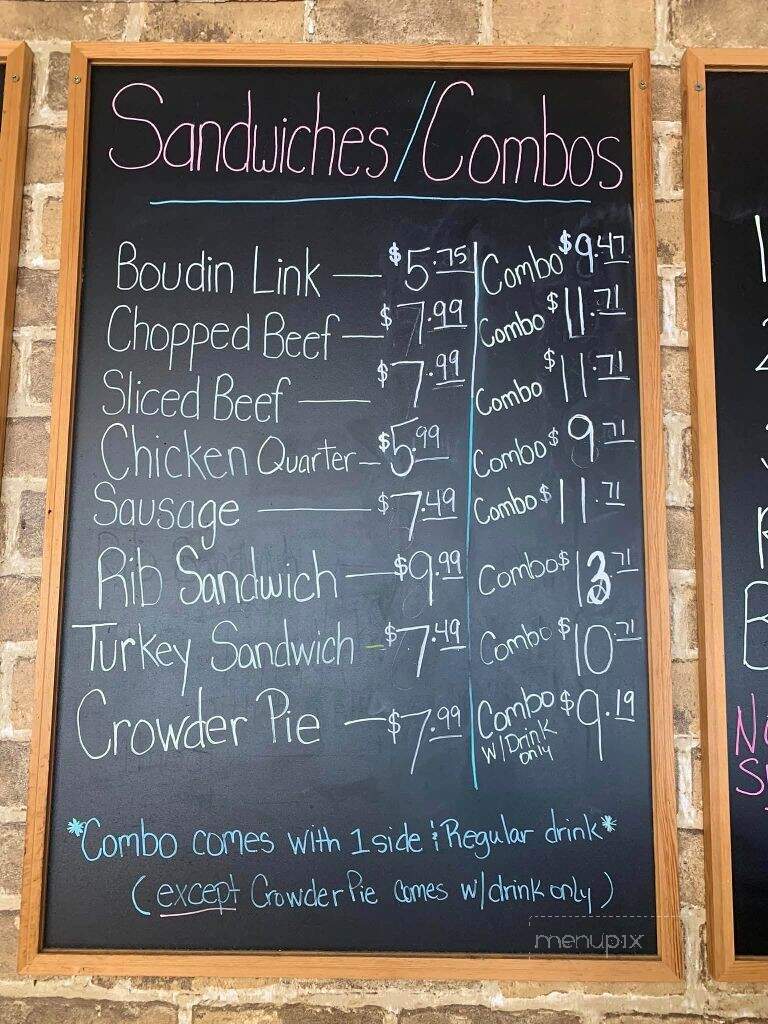 Sandwiches/Combos
Boudin Link — $5.75 Combo $9.47
Chopped Beef — $7.99 Combo $11.71
Sliced Beef — $7.99 Combo $11.71
Chicken Quarter – $5.99 Combo $9.71
Sausage — $7.49 Combo $11.71
Rib Sandwich — $9.99 Combo $13.71
Turkey Sandwich – $7.49 Combo $10.71
Crowder Pie — $7.99 Combo $9.19
W/Drink
only
*Combo comes with 1 side & Regular drink*
(except Crowder Pie comes w/drink only)
menupix